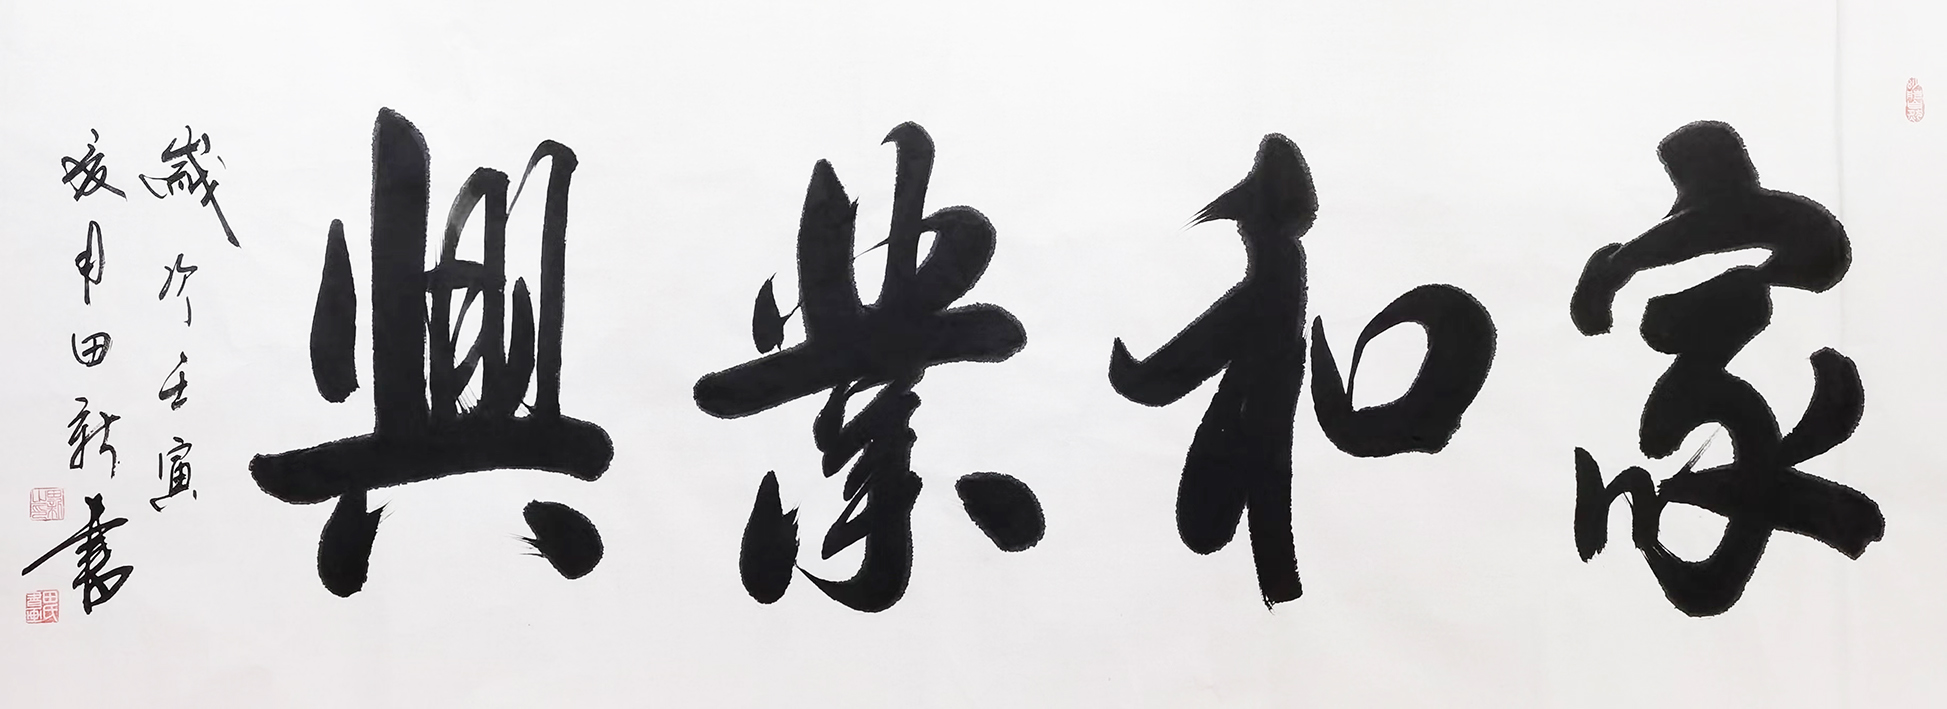 家和業興
歲次壬寅
夏月田新書